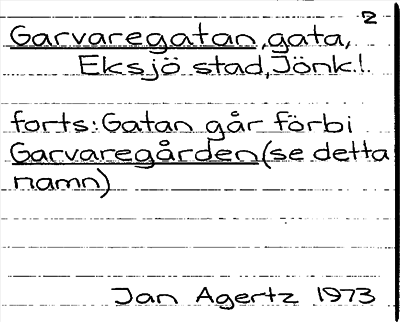 2
Garvaregatan, gata,
Eksjö stad, Jönk.l.
forts: Gatan går förbi
Garvaregården (se detta
namn)
Jan Agertz 1973